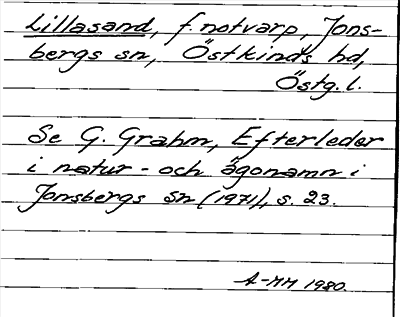 Lillasand, f. notvarp, Jons-
bergs sn, Östkinds hd,
Östg. l.
Se G. Grahm, Efterleder
i natur- och ägonamn i
Jonsbergs sn (1971), s. 23.
A-MM 1980.